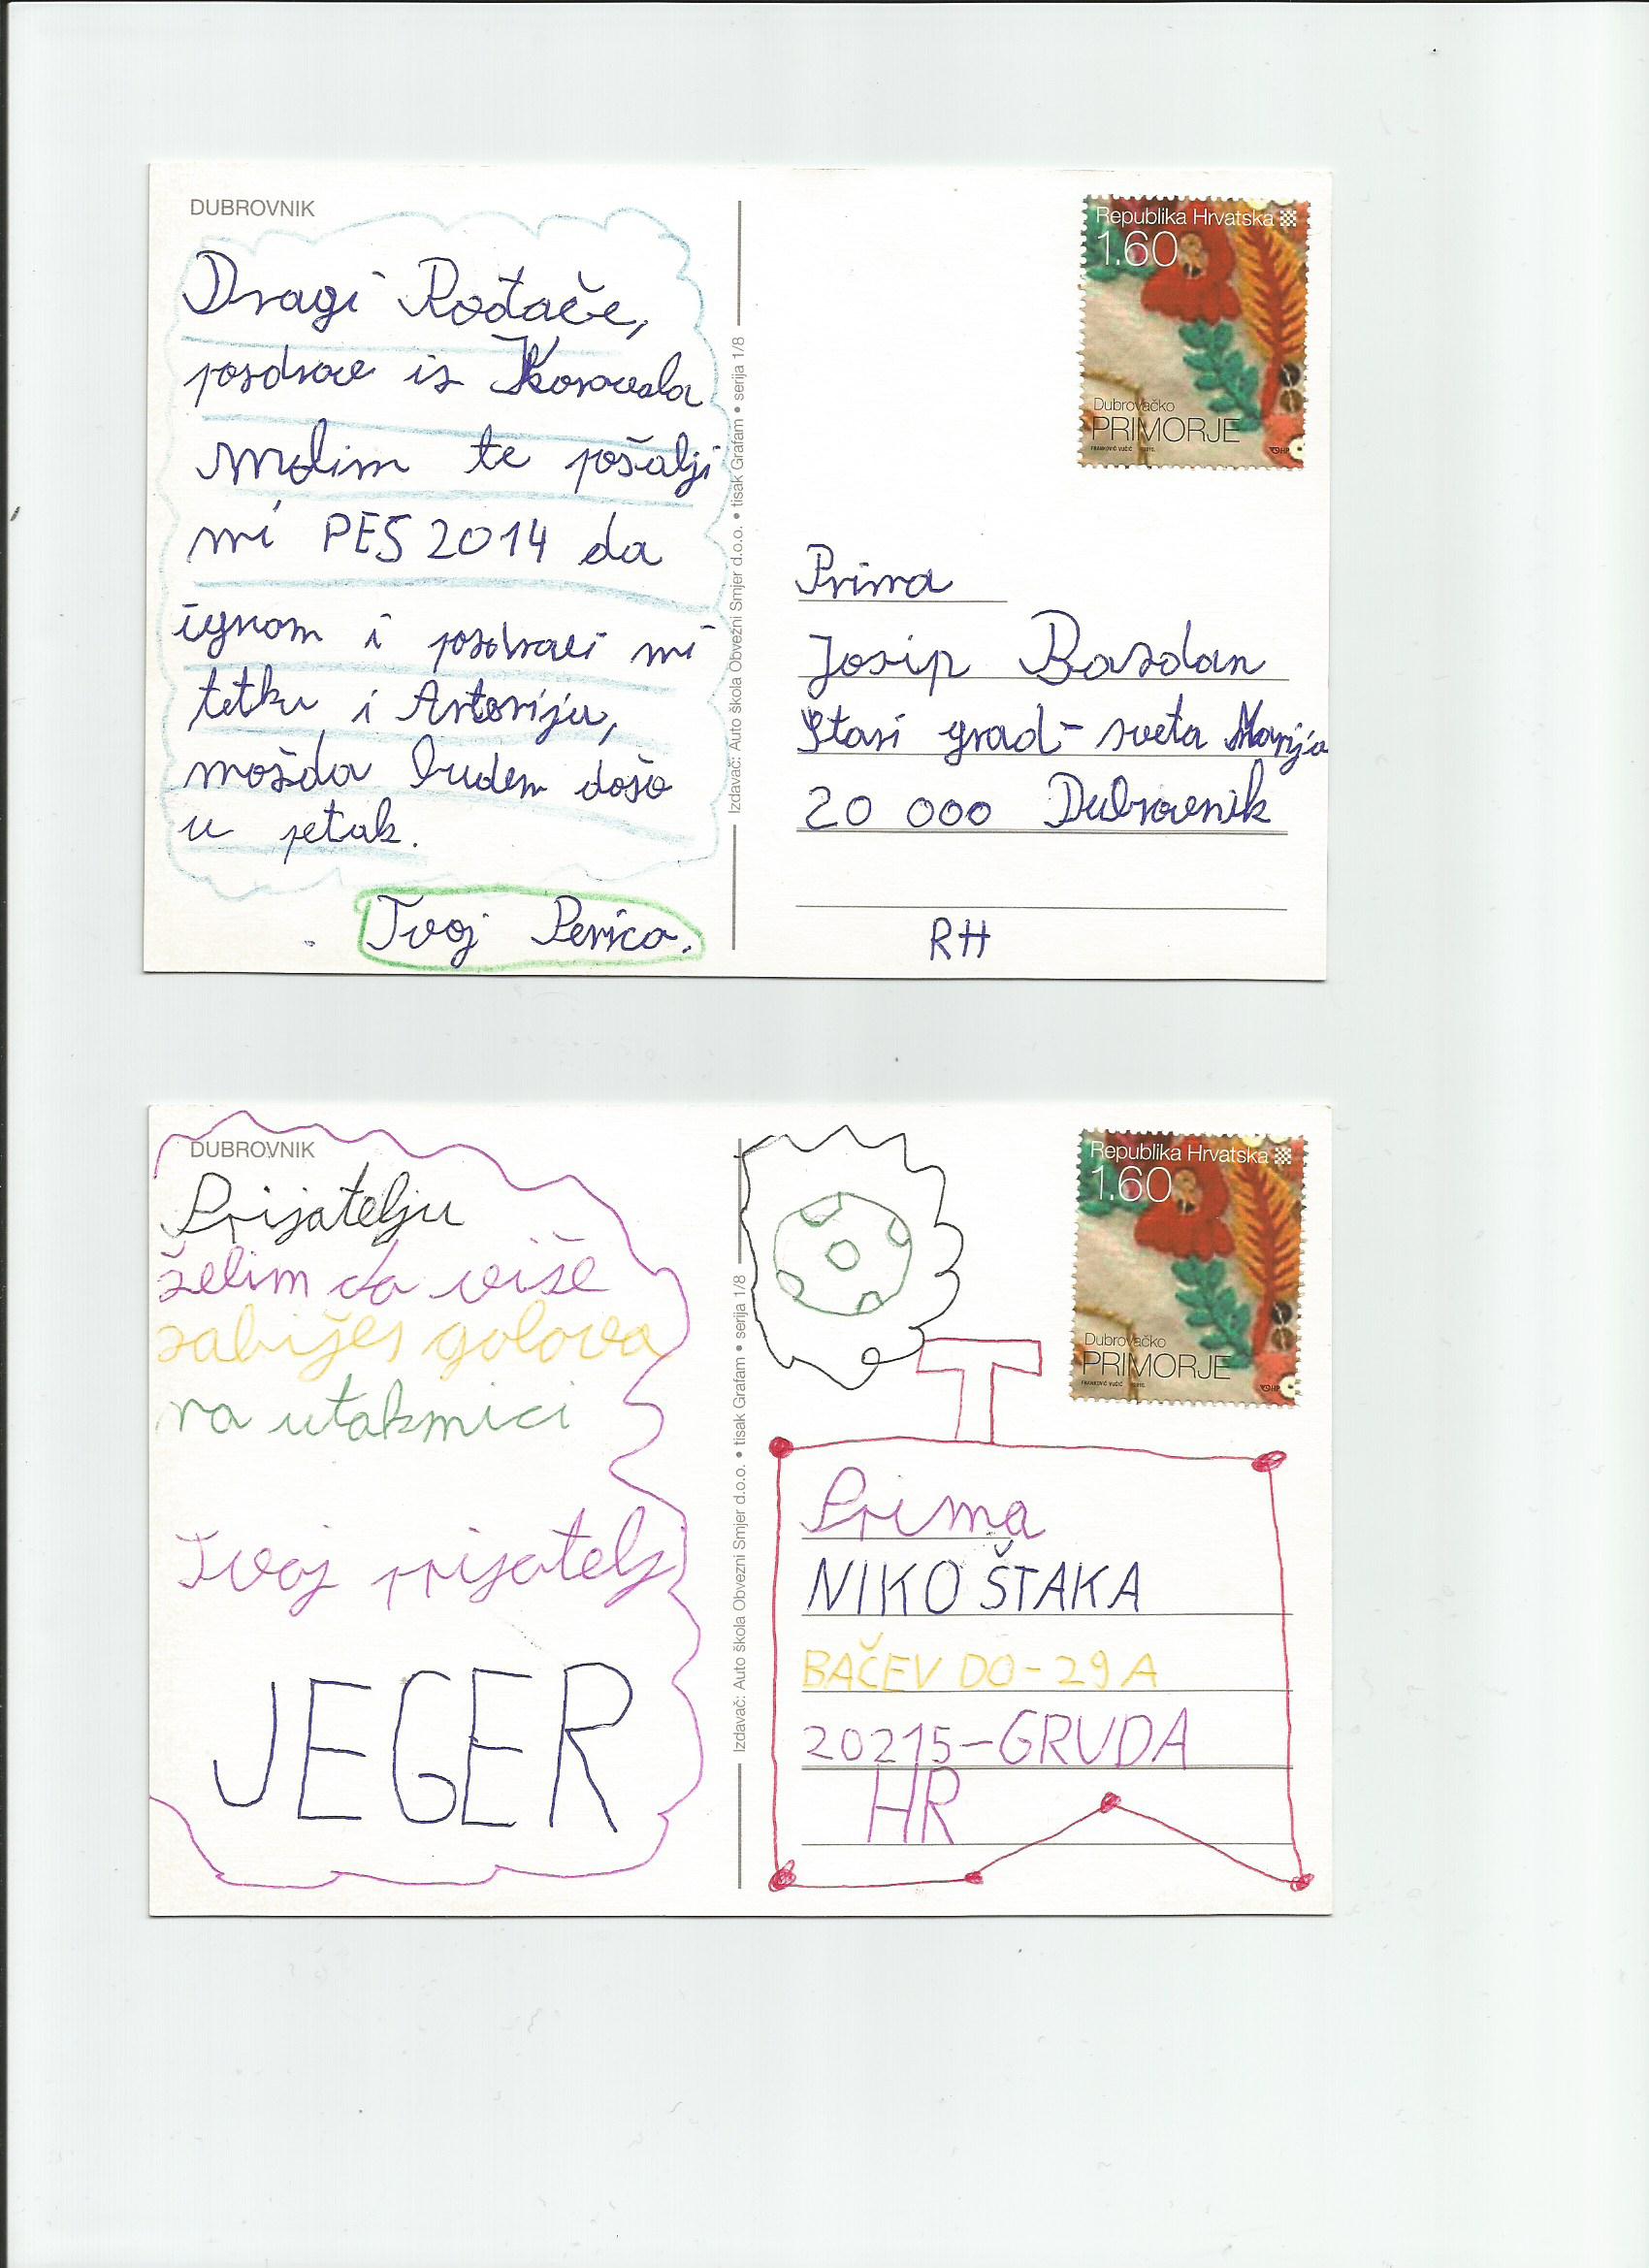 DUBROVNIK
Dragi Rođače,
pozdrav iz Konavala
molim te pošalji
mi PES 2014 da
igram i pozdravi mi
tetku i Antoniju,
možda budem došo
u petak.
Tvoj Perica.
Izdavač: Auto škola Obvezni Smjer d.o.o. • tisak Grafam • serija 1/8
Republika Hrvatska
1.60
Dubrovačko
PRIMORJE
HP
Prima
Josip Bazdan
Stari grad - sveta Marija
20 000 Dubrovnik
RH
DUBROVNIK
Prijatelju
želim da više
zabiješ golova
na utakmici
Tvoj prijatelj
JEGER
Izdavač: Auto škola Obvezni Smjer d.o.o. • tisak Grafam • serija 1/8
Republika Hrvatska
1.60
Dubrovačko
PRIMORJE
HP
Prima
NIKO ŠTAKA
BAČEV DO-29A
20215-GRUDA
HR